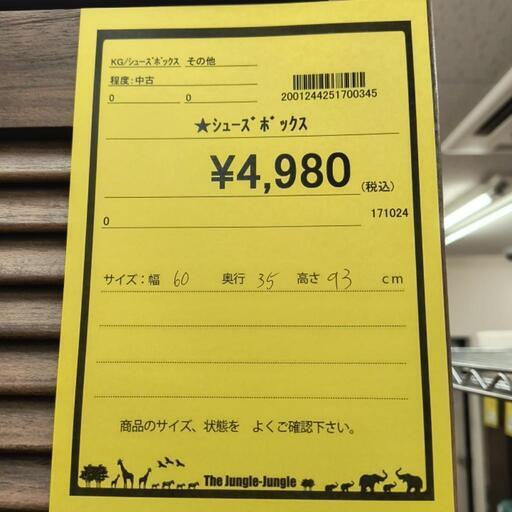 KG/シューズボックス その他
程度:中古
0 0
2001244251700345
★シューズボックス
¥4,980(税込)
0 171024
サイズ:幅 60 奥行 35 高さ 93 cm
商品のサイズ、状態を よくご確認下さい。
The Jungle-Jungle